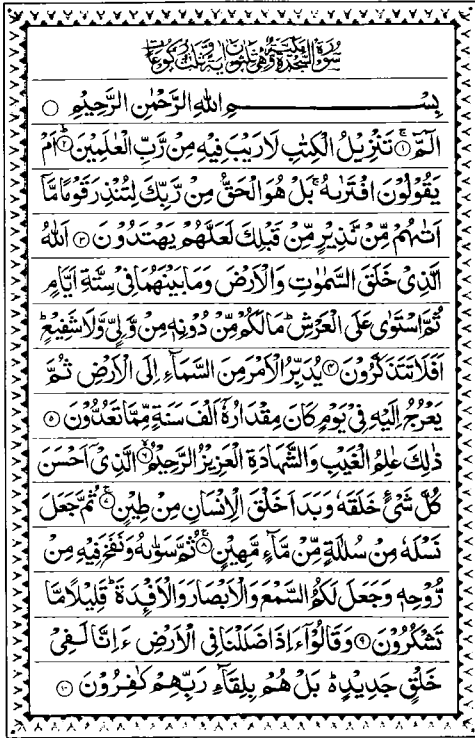 سُوْرَةُ السَّجْدَةِ مَكِّيَّةٌ وَّهِيَ ثَلٰثُوْنَ اٰيَةً وَّثَلٰثُ رُكُوْعَاتٍ
بِسْمِ اللّٰهِ الرَّحْمٰنِ الرَّحِيْمِ ○
الٓمّٓ ۚ﴿۱﴾ تَنْزِيْلُ الْكِتٰبِ لَا رَيْبَ فِيْهِ مِنْ رَّبِّ الْعٰلَمِيْنَ ؕ﴿۲﴾ اَمْ
يَقُوْلُوْنَ افْتَرٰىهُ ۚ بَلْ هُوَ الْحَقُّ مِنْ رَّبِّكَ لِتُنْذِرَ قَوْمًا مَّاۤ
اَتٰىهُمْ مِّنْ نَّذِيْرٍ مِّنْ قَبْلِكَ لَعَلَّهُمْ يَهْتَدُوْنَ ﴿۳﴾ اَللّٰهُ
الَّذِيْ خَلَقَ السَّمٰوٰتِ وَالْاَرْضَ وَمَا بَيْنَهُمَا فِيْ سِتَّةِ اَيَّامٍ
ثُمَّ اسْتَوٰى عَلَى الْعَرْشِ ؕ مَا لَكُمْ مِّنْ دُوْنِهٖ مِنْ وَّلِيٍّ وَّلَا شَفِيْعٍ ؕ
اَفَلَا تَتَذَكَّرُوْنَ ﴿۴﴾ يُدَبِّرُ الْاَمْرَ مِنَ السَّمَآءِ اِلَى الْاَرْضِ ثُمَّ
يَعْرُجُ اِلَيْهِ فِيْ يَوْمٍ كَانَ مِقْدَارُهٗۤ اَلْفَ سَنَةٍ مِّمَّا تَعُدُّوْنَ ﴿۵﴾
ذٰلِكَ عٰلِمُ الْغَيْبِ وَالشَّهَادَةِ الْعَزِيْزُ الرَّحِيْمُ ۙ﴿۶﴾ الَّذِيْۤ اَحْسَنَ
كُلَّ شَيْءٍ خَلَقَهٗ وَبَدَاَ خَلْقَ الْاِنْسَانِ مِنْ طِيْنٍ ۚ﴿۷﴾ ثُمَّ جَعَلَ
نَسْلَهٗ مِنْ سُلٰلَةٍ مِّنْ مَّآءٍ مَّهِيْنٍ ۚ﴿۸﴾ ثُمَّ سَوّٰىهُ وَنَفَخَ فِيْهِ مِنْ
رُّوْحِهٖ وَجَعَلَ لَكُمُ السَّمْعَ وَالْاَبْصَارَ وَالْاَفْـِٕدَةَ ؕ قَلِيْلًا مَّا
تَشْكُرُوْنَ ﴿۹﴾ وَقَالُوْۤا ءَاِذَا ضَلَلْنَا فِي الْاَرْضِ ءَاِنَّا لَفِيْ
خَلْقٍ جَدِيْدٍ ؕ بَلْ هُمْ بِلِقَآءِ رَبِّهِمْ كٰفِرُوْنَ ﴿۱۰﴾